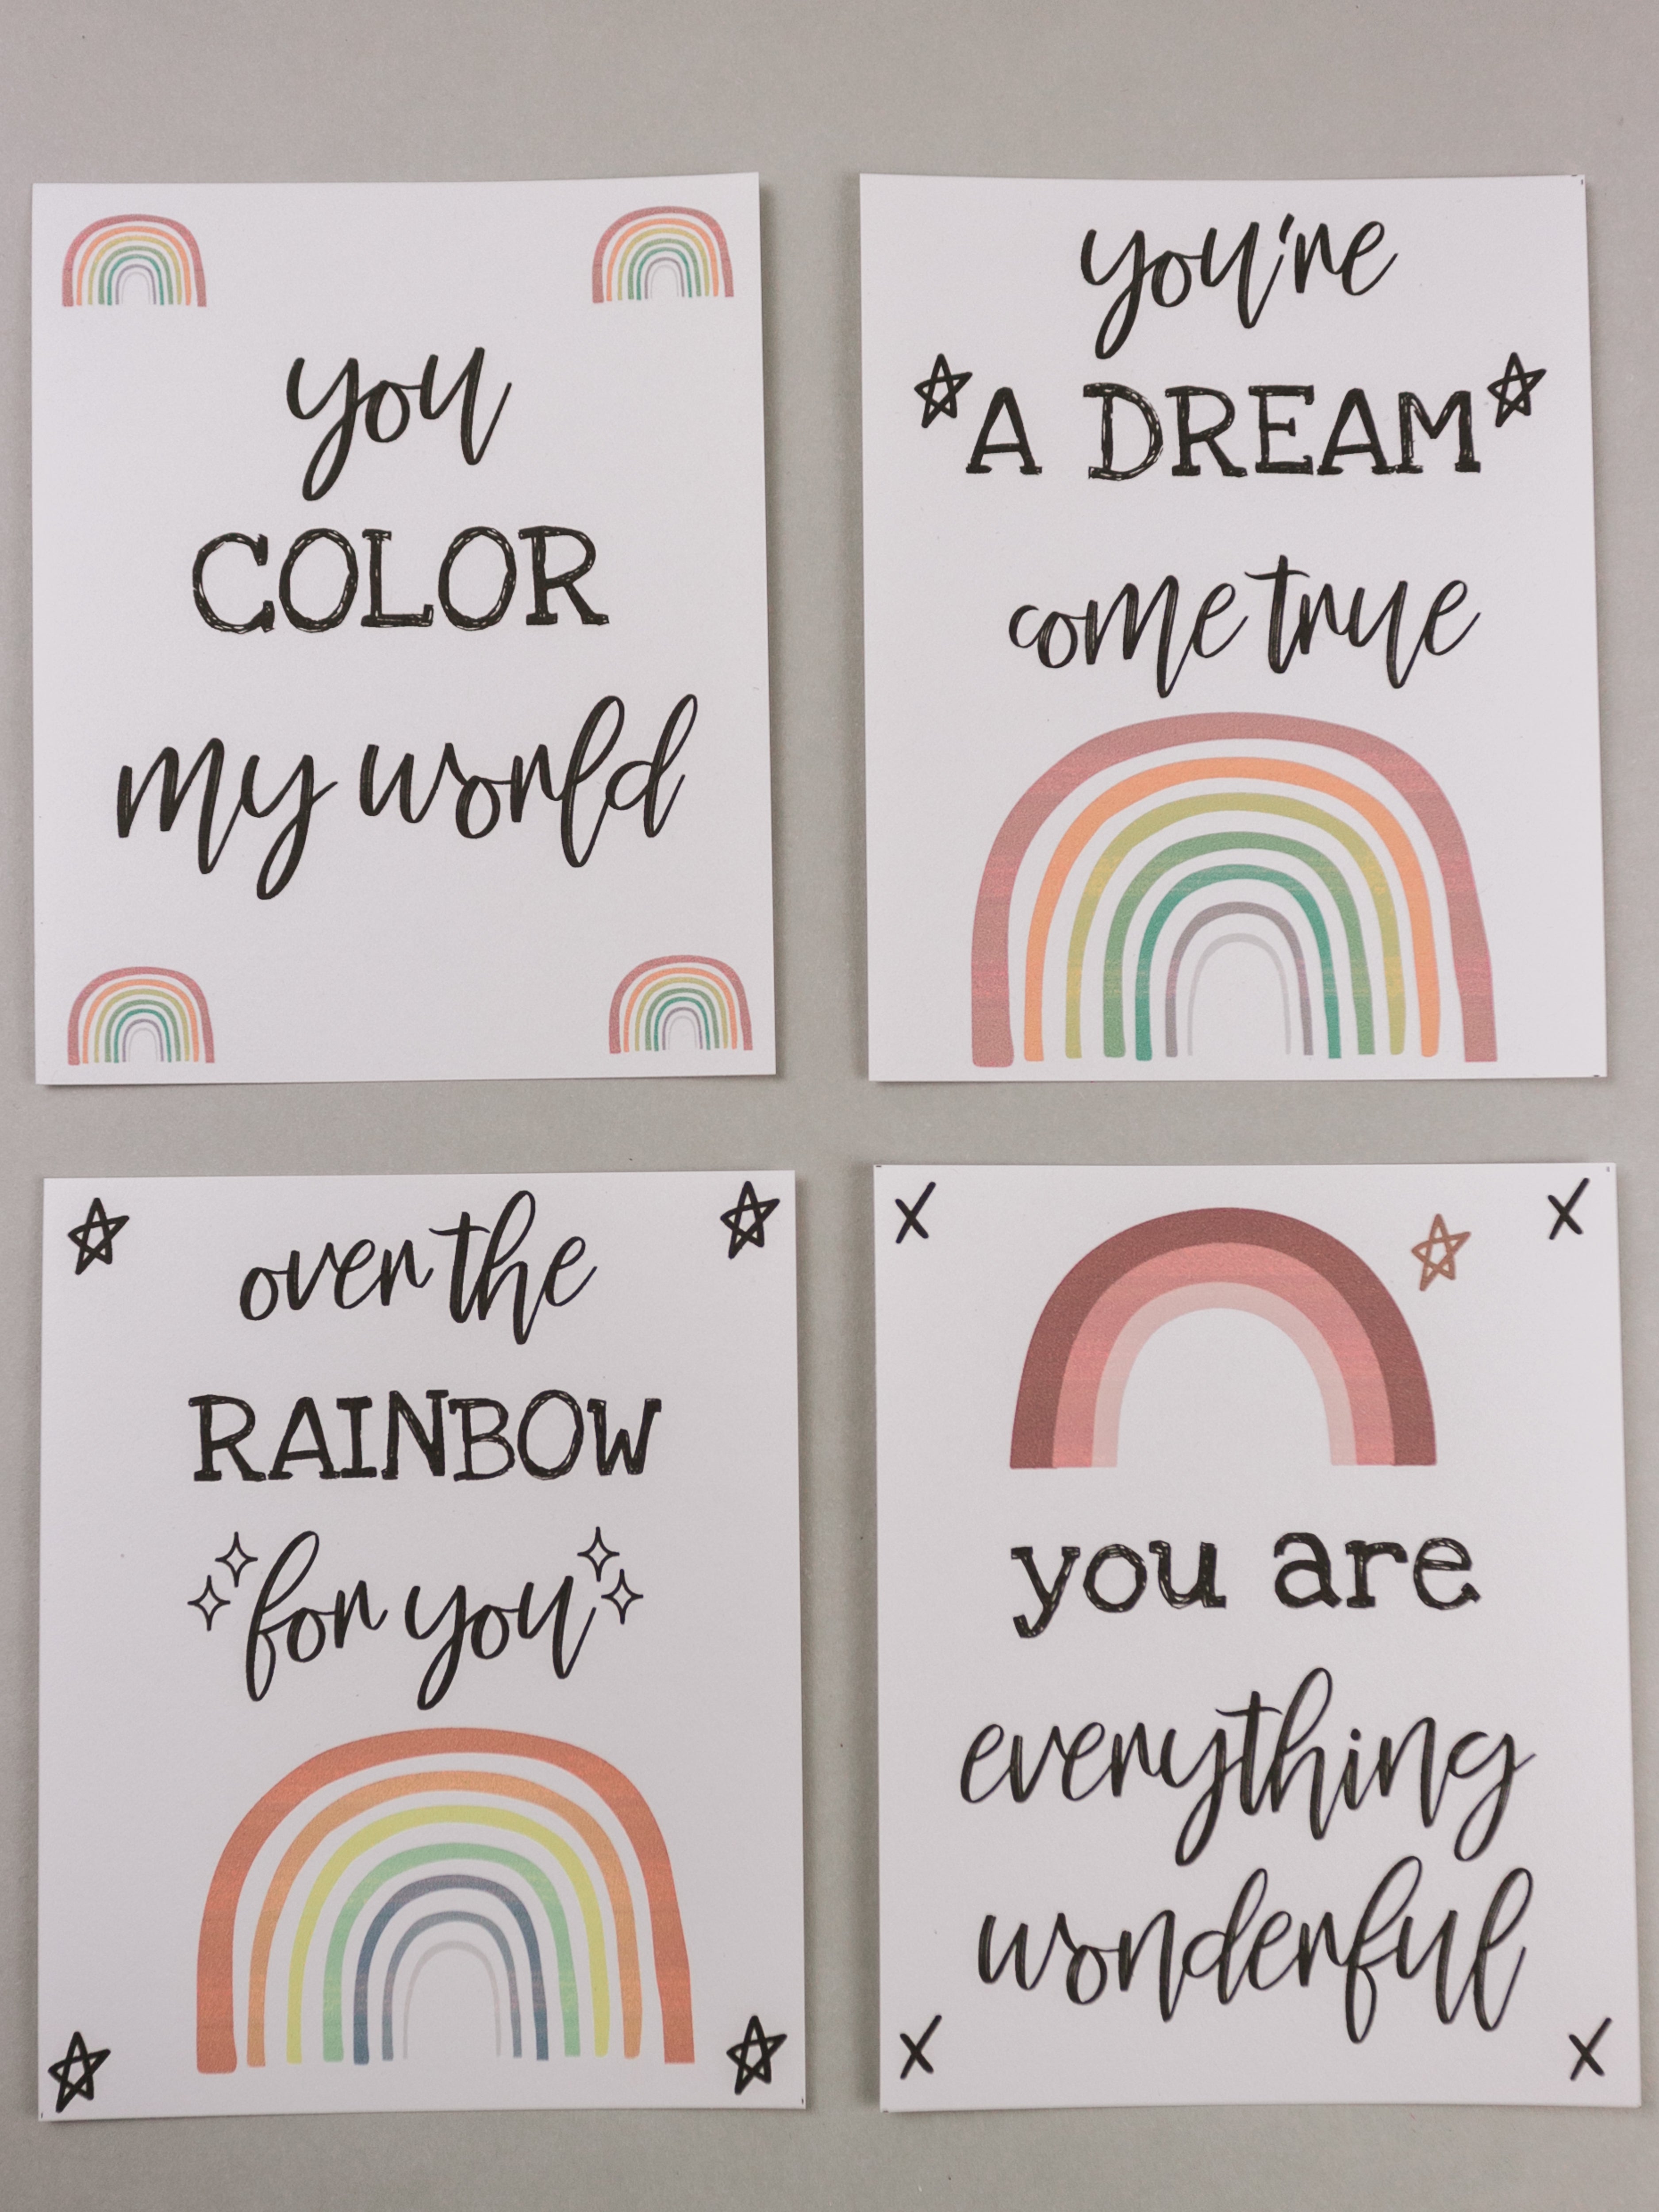 you
COLOR
my world
you're
A DREAM
come true
over the
RAINBOW
for you
you are
everything
wonderful